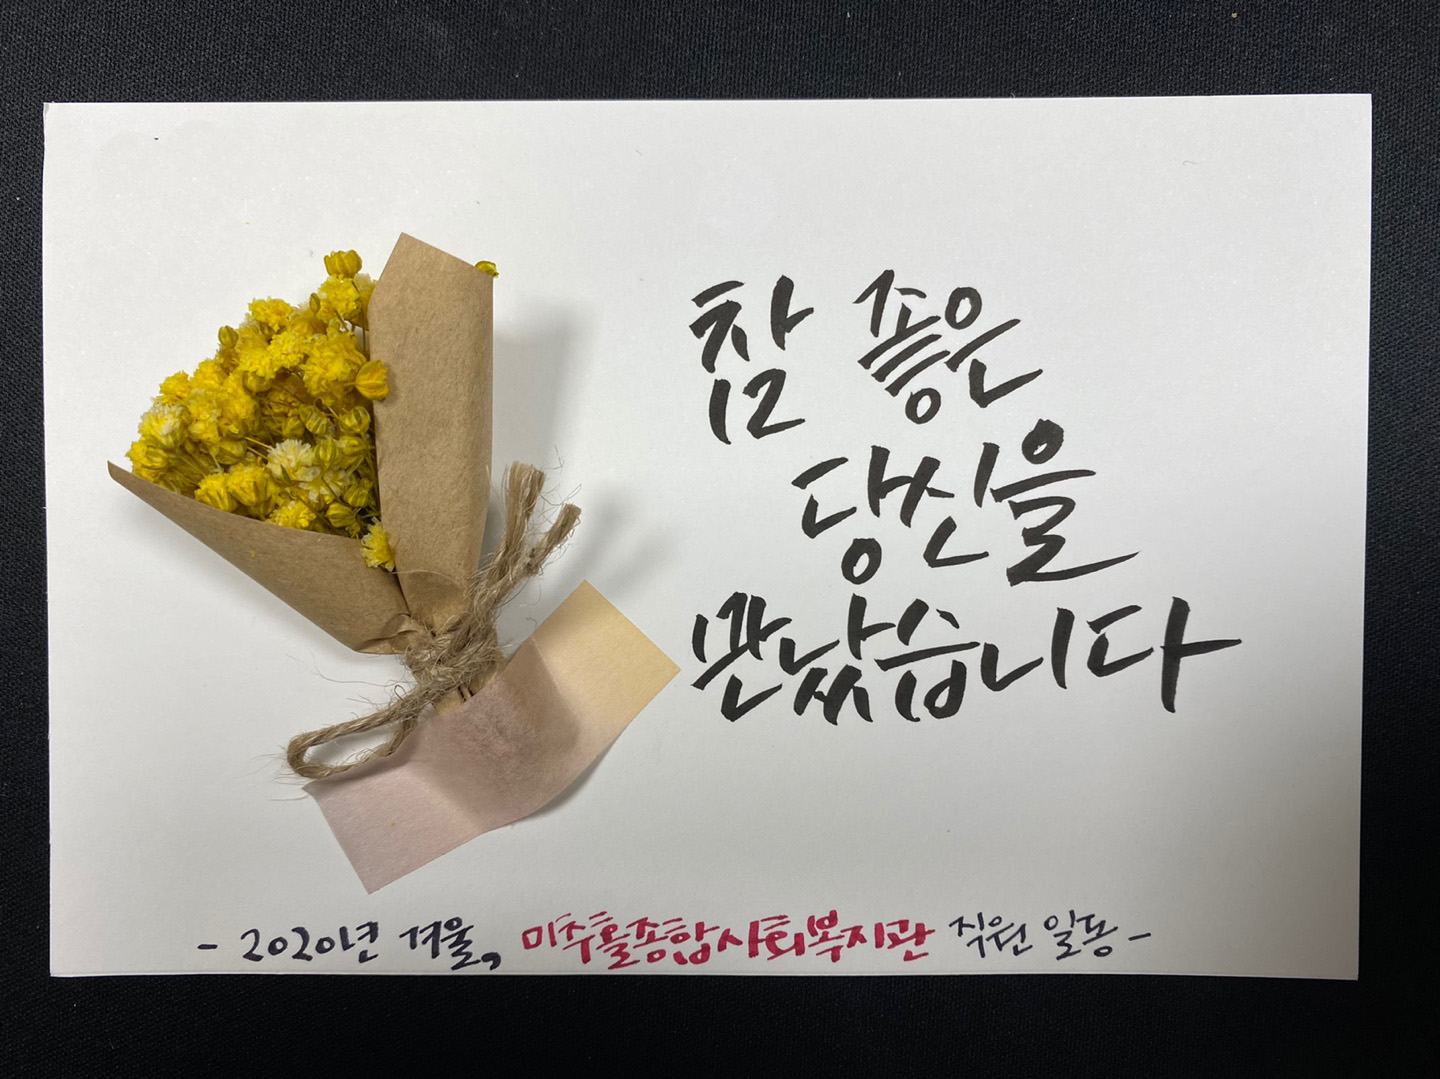 참 좋은
당신을
만났습니다
- 2020년 겨울, 미추홀종합사회복지관 직원 일동 -